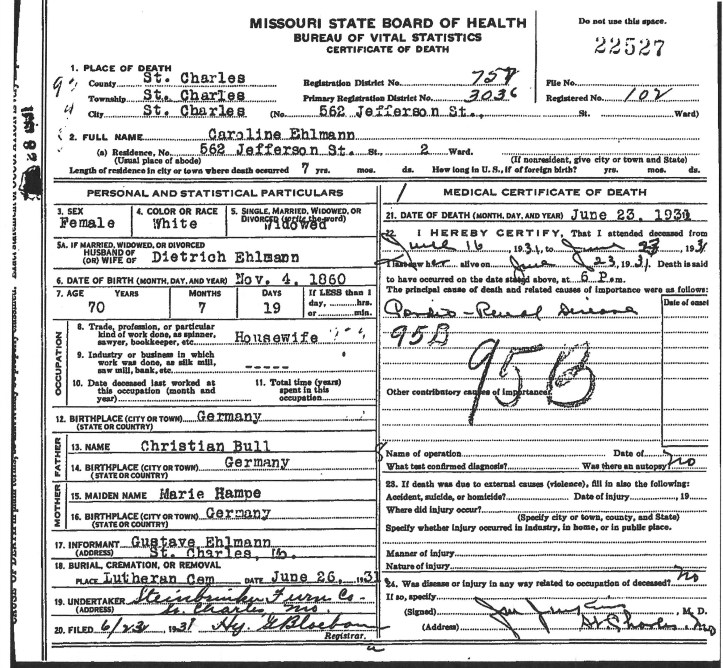 MISSOURI STATE BOARD OF HEALTH
BUREAU OF VITAL STATISTICS
CERTIFICATE OF DEATH
Do not use this space.
22527
1. PLACE OF DEATH
County St. Charles
Registration District No. 757
File No.
Township St. Charles
Primary Registration District No. 3036
Registered No. 102
City St. Charles (No. 562 Jefferson St., St. Ward)
2. FULL NAME Caroline Ehlmann
(a) Residence, No. 562 Jefferson St. St., 2 Ward.
(Usual place of abode) (If nonresident, give city or town and State)
Length of residence in city or town where death occurred 7 yrs. mos. ds. How long in U.S., if of foreign birth? yrs. mos. ds.
PERSONAL AND STATISTICAL PARTICULARS
3. SEX Female
4. COLOR OR RACE White
5. SINGLE, MARRIED, WIDOWED, OR DIVORCED (write the word) Widowed
5A. IF MARRIED, WIDOWED, OR DIVORCED
HUSBAND OF
(OR) WIFE OF Dietrich Ehlmann
6. DATE OF BIRTH (MONTH, DAY, AND YEAR) Nov. 4, 1860
7. AGE YEARS MONTHS DAYS If LESS than 1
70 7 19 day, hrs.
or min.
OCCUPATION
8. Trade, profession, or particular
kind of work done, as spinner,
sawyer, bookkeeper, etc. Housewife
9. Industry or business in which
work was done, as silk mill,
saw mill, bank, etc. -----
10. Date deceased last worked at
this occupation (month and
year)
11. Total time (years)
spent in this
occupation
12. BIRTHPLACE (CITY OR TOWN) Germany
(STATE OR COUNTRY)
FATHER
13. NAME Christian Bull
14. BIRTHPLACE (CITY OR TOWN) Germany
(STATE OR COUNTRY)
MOTHER
15. MAIDEN NAME Marie Hampe
16. BIRTHPLACE (CITY OR TOWN) Germany
(STATE OR COUNTRY)
17. INFORMANT Gustave Ehlmann
(ADDRESS) St. Charles, Mo.
18. BURIAL, CREMATION, OR REMOVAL
PLACE Lutheran Cem DATE June 26, 1931
19. UNDERTAKER Steinbrinker Furn Co.
(ADDRESS) St. Charles, Mo.
20. FILED 6/23 1931 Hy. G Bloebaum
Registrar.
MEDICAL CERTIFICATE OF DEATH
21. DATE OF DEATH (MONTH, DAY, AND YEAR) June 23, 1931
22. I HEREBY CERTIFY, That I attended deceased from
June 16, 1931, to June 23, 1931
I last saw her alive on June 23, 1931. Death is said
to have occurred on the date stated above, at 6 P.m.
The principal cause of death and related causes of importance were as follows:
Date of onset
Cardio-Renal Disease
95B
95B
Other contributory causes of importance:
Name of operation Date of
What test confirmed diagnosis? Was there an autopsy? no
23. If death was due to external causes (violence), fill in also the following:
Accident, suicide, or homicide? Date of injury , 19
Where did injury occur?
(Specify city or town, county, and State)
Specify whether injury occurred in industry, in home, or in public place.
Manner of injury
Nature of injury
24. Was disease or injury in any way related to occupation of deceased? no
If so, specify
(Signed) , M. D.
(Address) St Charles, Mo